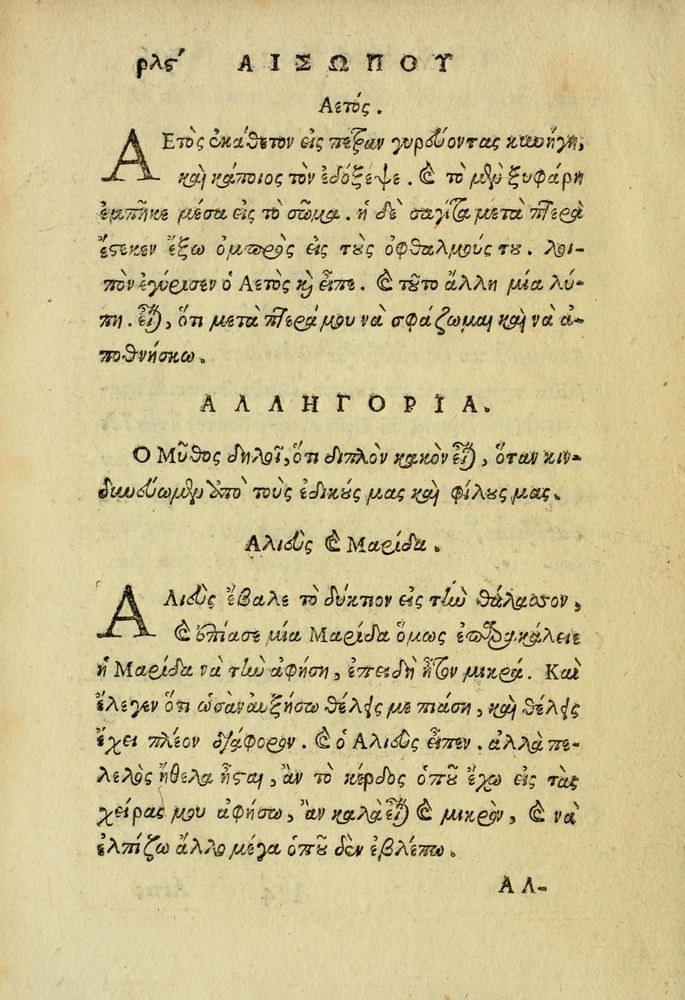 ρλς΄ ΑΙΣΩΠΟΥ
Αετός.
ΑΕτὸς ἐκάθετον εἰς πέτραν γυρεύοντας κυνήγι,
καὶ κάποιος τὸν ἐδόξεψε. Καὶ τὸ μὲν ξυφάρη
ἐμπῆκε μέσα εἰς τὸ σῶμα. ἡ δὲ σαγίτα μετὰ πτερὰ
ἔστεκεν ἔξω ὀμπρὸς εἰς τοὺς ὀφθαλμούς του. λοι-
πὸν ἐγύρισεν ὁ Αετὸς καὶ εἶπε. Καὶ τοῦτο ἄλλη μία λύ-
πη. εἶναι, ὅτι μετὰ πτεράμου νὰ σφάζωμαι καὶ νὰ ἀ-
ποθνήσκω.
ΑΛΛΗΓΟΡΙΑ.
Ο Μῦθος δηλοῖ, ὅτι διπλὸν κακὸν εἶναι, ὅταν κιν-
δυνεύωμεν ἀπὸ τοὺς ἐδικούς μας καὶ φίλους μας.
Αλιεὺς καὶ Μαρίδα.
ΑΛιεὺς ἔβαλε τὸ δύκτιον εἰς τὴν θάλασσαν,
καὶ ἔπιασε μία Μαρίδα ὅμως ἐπαρακάλειε
ἡ Μαρίδα νὰ τὴν ἀφήση, ἐπειδὴ ἦτον μικρά. Καὶ
ἔλεγεν ὅτι ὡσὰν αὐξήσω θέλεις με πιάση, καὶ θέλεις
ἔχει πλέον διάφορον. Καὶ ὁ Αλιεὺς εἶπεν. ἀλλὰ πε-
λελὸς ἤθελα ἦσται, ἂν τὸ κέρδος ὁποῦ ἔχω εἰς τὰς
χεῖρας μου ἀφήσω, ἂν καλὰ εἶναι καὶ μικρὸν, καὶ νὰ
ἐλπίζω ἄλλο μέγα ὁποῦ δὲν ἐβλέπω.
ΑΛ-